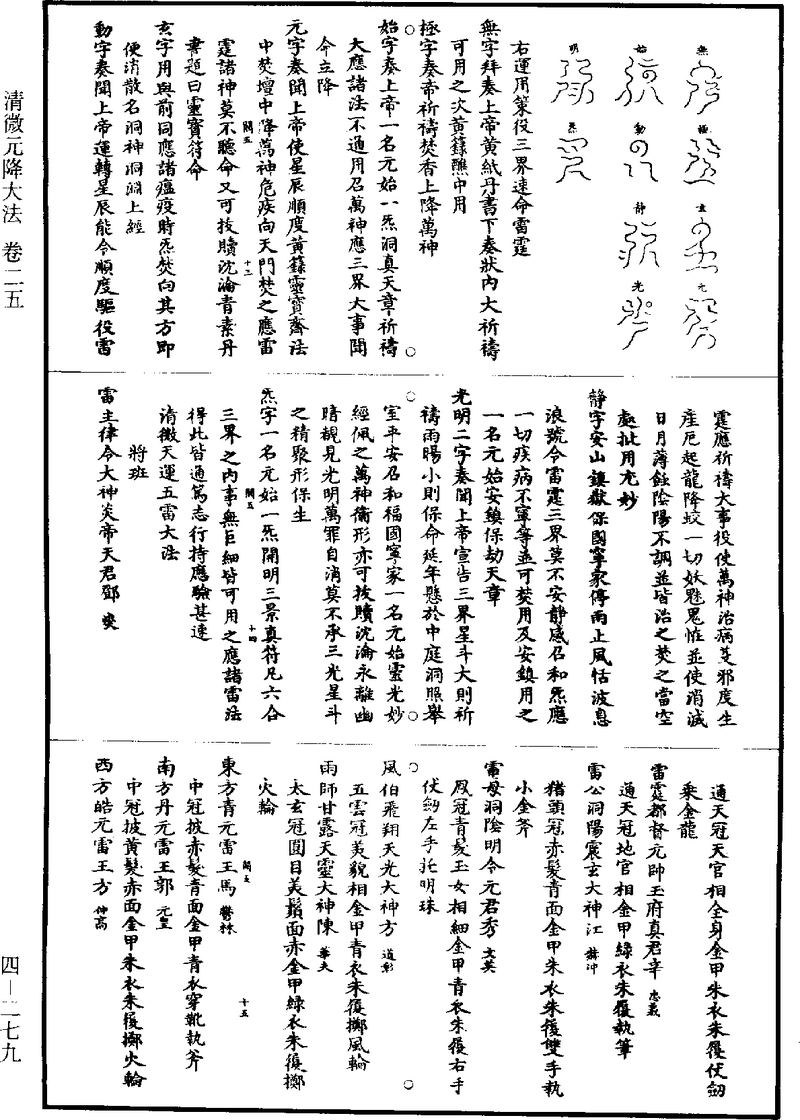 清微元降大法 卷二五
四—二七九
無 始 明
極 動 炁
玄 靜
元 光
右運用策役三界速命雷霆
無字拜奏上帝黃紙丹書下奏狀內大祈禱
可用之次黃籙醮中用
極字奏帝祈禱焚香上降萬神
始字奏上帝一名元始一炁洞真天章祈禱
大應諸法不通用召萬神應三界大事聞
命立降
元字奏聞上帝使星辰順度黃籙靈寶齋法
中焚壇中降萬神危疾向天門焚之應雷
關五 十三
霆諸神莫不聽命又可拔贖沈淪青素丹
書題曰靈寶符命
玄字用與前同應諸瘟疫時炁焚向其方即
便消散名洞神洞淵上經
動字奏聞上帝運轉星辰能令順度驅役雷
霆應祈禱大事役使萬神治病芟邪度生
産厄起龍降蛟一切妖魅鬼怪並使消滅
日月薄蝕陰陽不調並皆治之焚之當空
處批用尤妙
靜字安山鎮嶽保國寧家停雨止風恬波息
浪號令雷霆三界莫不安靜感召和炁應
一切疾病不寧等並可焚用及安鎮用之
一名元始安鎮保劫天章
光明二字奏聞上帝宣告三界星斗大則祈
禱雨暘小則保命延年懸於中庭洞照舉
室平安召和福國寧家一名元始靈光妙
經佩之萬神衛形亦可拔贖沈淪永離幽
暗覩見光明萬罪自消莫不承三光星斗
之精聚形保生
炁字一名元始一炁開明三景真符凡六合
關五 十四
三界之內事無巨細皆可用之應諸雷法
得此皆通篤志行持應驗甚速
清微天運五雷大法
將班
雷主律令大神炎帝天君鄧 燮
通天冠天官相全身金甲朱衣朱履仗劒
乘金龍
雷霆都督元帥玉府真君辛 忠義
通天冠地官相金甲綠衣朱履執筆
雷公洞陽震玄大神江 赫冲
猪頭冠赤髮青面金甲朱衣朱履雙手執
小金斧
電母洞陰明令元君秀 文英
鳳冠青髮玉女相細金甲青衣朱履右手
仗劒左手托明珠
風伯飛翔天光大神方 道彰
五雲冠美貌相金甲青衣朱履擲風輪
雨師甘露天靈大神陳 華夫
太玄冠圓目美鬚面赤金甲綠衣朱履擲
火輪
東方青元雷王馬 鬱林
關五 十五
中冠披赤髮青面金甲青衣穿靴執斧
南方丹元雷王郭 元皇
中冠披黃髮赤面金甲朱衣朱履擲火輪
西方皓元雷王方 仲高